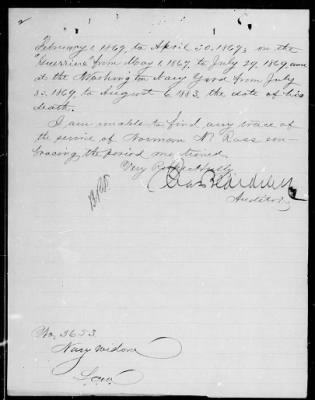 2
February 1, 1869, to April 30, 1869, on the
"Guerriere" from May 1, 1869, to July 29, 1869, and
at the Washington Navy Yard from July
30, 1869, to August 6, 1883, the date of his
death.
I am unable to find any trace of
the service of Norman N. Ross em-
bracing the period mentioned.
Very Respectfully,
Auditor
No. 3653
Navy widow